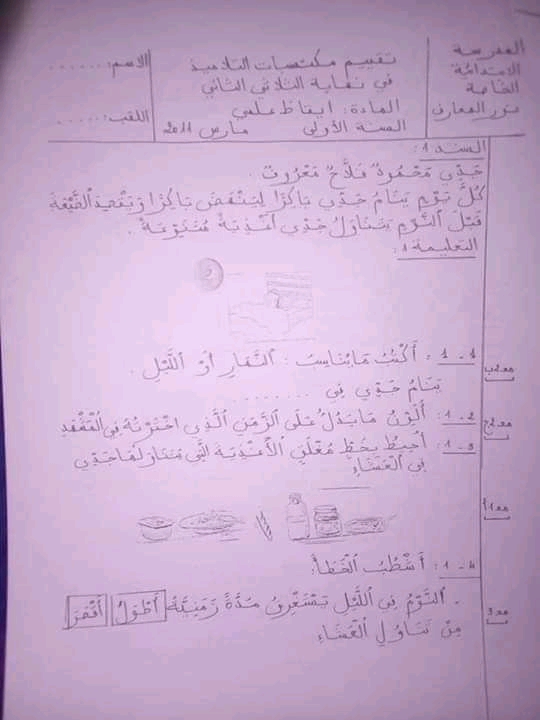 المدرسة
الابتدائية
الخاصة
نور المعارف
تقييم مكتسبات التلاميذ
في نهاية الثلاثي الثاني
المادة: ايقاظ علمي
السنة الأولى مارس 2011
الاسم: ......
اللقب: ......
السند 1:
جَدِّي مَحْمُودٌ فَلَّاحٌ
كُلَّ يَوْمٍ يَنَامُ جَدِّي بَاكِرًا لِيَنْهَضَ بَاكِرًا وَيَقْصِدَ الضَّيْعَةَ
قَبْلَ النَّوْمِ يَتَنَاوَلُ جَدِّي أَغْذِيَةً مُتَنَوِّعَةً.
التعليمة 1:
1 - 1: أَكْتُبُ مَا يُنَاسِبُ: النَّهَارِ أَوْ اللَّيْلِ.
يَنَامُ جَدِّي فِي ........
2 - 1: أُلَوِّنُ مَا يَدُلُّ عَلَى الزَّمَنِ الَّذِي اخْتَرْتُهُ فِي الْمَشْهَدِ
3 - 1: أُحِيطُ بِخَطٍّ مُغْلَقٍ الْأَغْذِيَةَ الَّتِي يَتَنَاوَلُهَا جَدِّي
فِي الْعَشَاءِ
4 - 1: أَشْطُبُ الْخَطَأَ:
- النَّوْمُ فِي اللَّيْلِ يَسْتَغْرِقُ مُدَّةً زَمَنِيَّةً أَطْوَلُ أَقْصَرَ
مِنْ تَنَاوُلِ الْعَشَاءِ
مع 2ب
مع 2ج
مع 1أ
مع 3